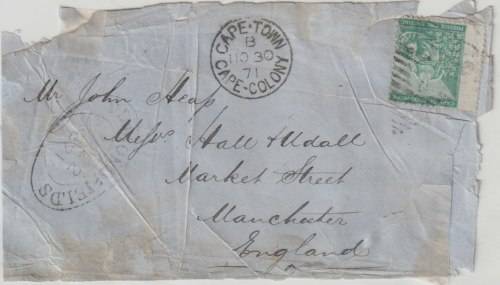 CAPE·TOWN
B
NO 30
71
CAPE-COLONY
Mr John Heap
Messrs Hall & Udall
Market Street
Manchester
England
FIELDS